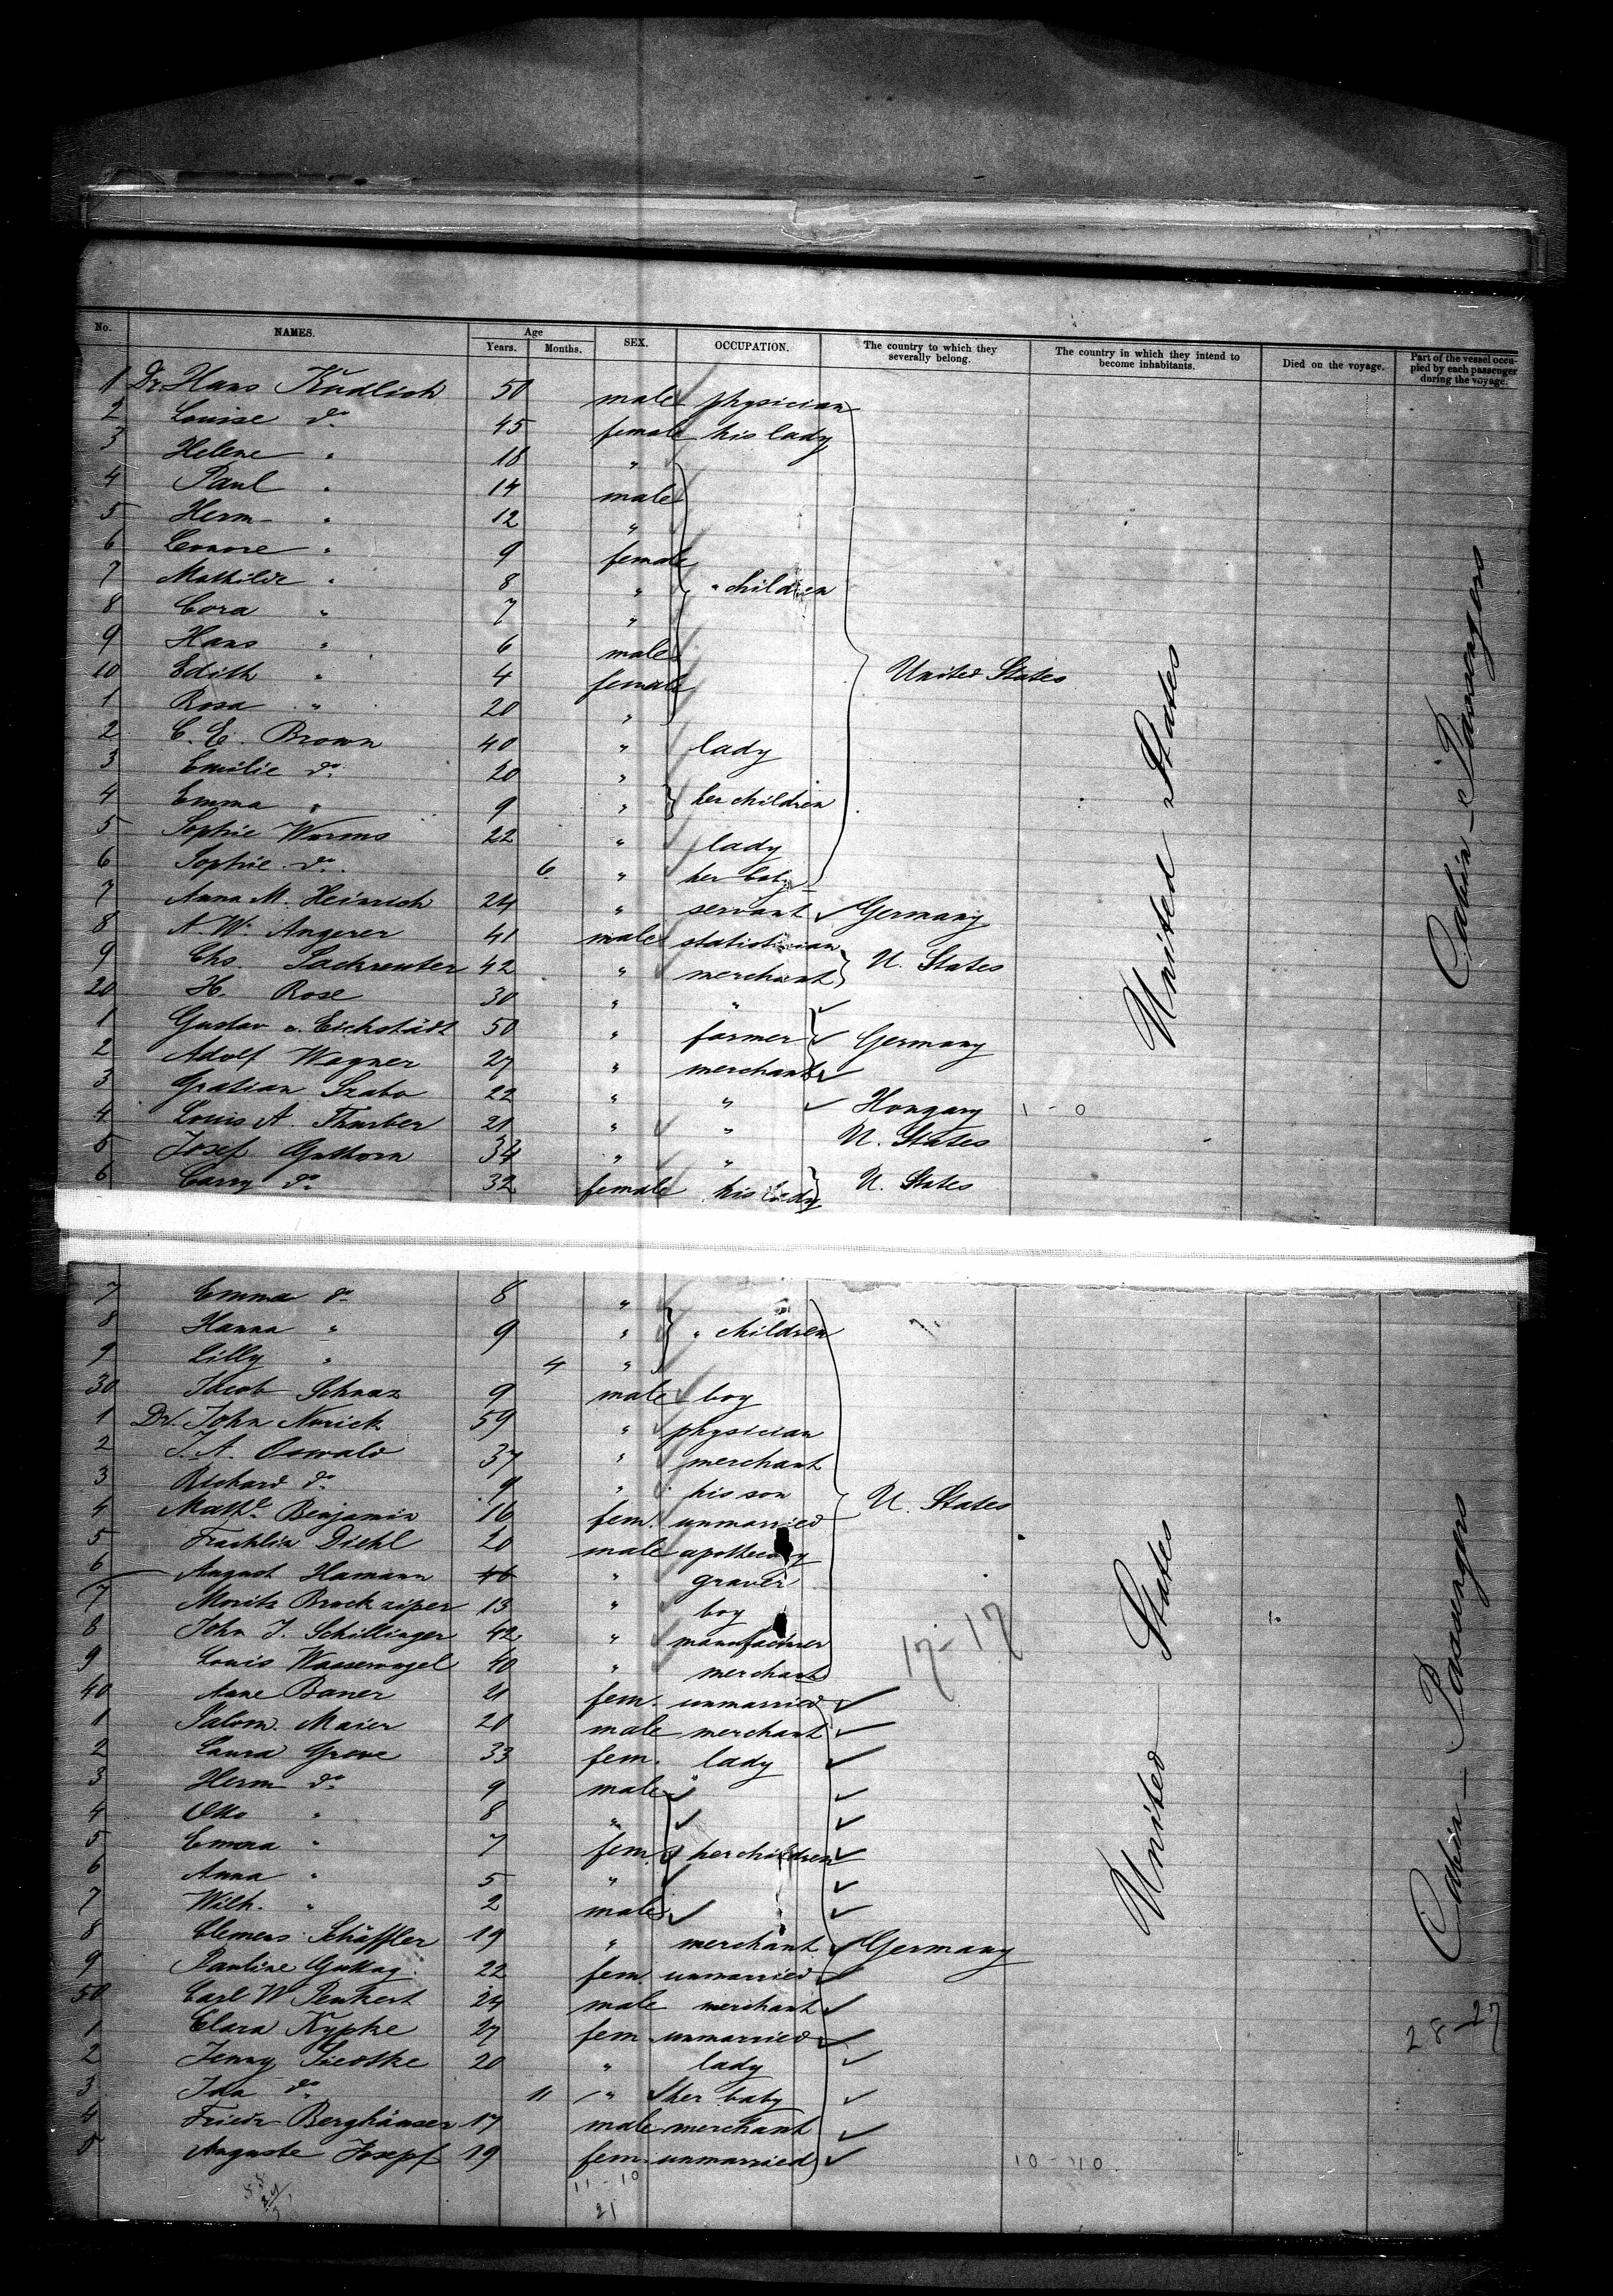 No. NAMES. Age Years. Months. SEX. OCCUPATION. The country to which they severally belong. The country in which they intend to become inhabitants. Died on the voyage. Part of the vessel occupied by each passenger during the voyage.
1 Dr. Hans Kudlich 50 male physician
2 Louise do. 45 female his lady
3 Helene " 18 "
4 Paul " 14 male
5 Herm " 12 "
6 Leonore " 9 female
7 Mathilde " 8 " " children
8 Cora " 7 "
9 Hans " 6 male
10 Edith " 4 female United States
1 Rosa " 20 "
2 C. E. Brown 40 " lady
3 Emilie do. 20 "
4 Emma " 9 " her children
5 Sophie Worms 22 " lady
6 Sophie do. 6 " her baby
7 Anna M. Heinrich 24 " servant Germany
8 N. W. Angerer 41 male statistician
9 Chs. Sachreuter 42 " merchant U. States
20 H. Rose 30 " "
1 Gustav v. Eichstädt 50 " farmer Germany
2 Adolf Wagner 27 " merchant
3 Gratian Szabo 22 " " Hongary 1 - 0
4 Louis A. Thurber 21 " " U. States
5 Josef Guttorn 34 " "
6 Carry do. 32 female his lady U. States
United States
Cabin - Passengers
7 Emma do. 8 "
8 Hanna " 9 " " children
9 Lilly " 4 "
30 Jacob Schnaz 9 male boy
1 Dr. John Norick 59 " physician
2 J. A. Oswald 37 " merchant
3 Richard do. 9 " his son
4 Mathe. Benjamin 16 fem. unmarried U. States
5 Franklin Diehl 20 male apothecary
6 August Hamann 46 " graver
7 Moritz Brockzieper 13 " boy
8 John J. Schillinger 42 " manufacturer
9 Louis Wasservogel 40 " merchant 17-17
40 Anne Baner 21 fem. unmarried
1 Salom. Maier 20 male merchant
2 Laura Greve 33 fem. lady
3 Herm do. 9 male
4 Otto " 8 "
5 Emma " 7 fem. her children
6 Anna " 5 "
7 Wilh. " 2 male
8 Clemens Schäffler 19 " merchant Germany
9 Pauline Guttag 22 fem. unmarried
50 Carl W. Penkert 24 male merchant
1 Clara Kypke 27 fem. unmarried
2 Jenny Siedtke 20 " lady
3 Ida do. 11 " her baby
4 Friedr Berghäuser 17 male merchant
5 Auguste Josepf 19 fem. unmarried 10-10
11-10
21
United States
Cabin - Passengers
28-27